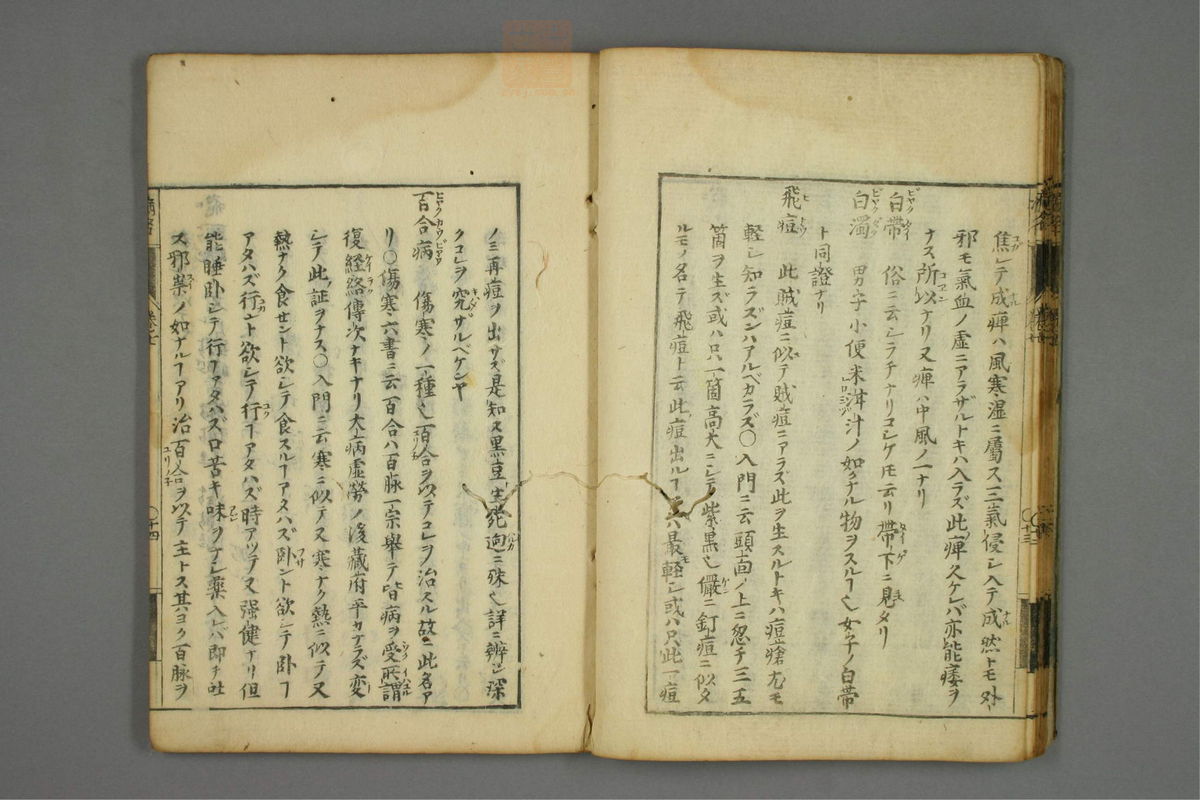 焦シテ成痺ハ風寒湿ニ屬ス三氣侵シ入テ成然トモ外
邪モ氣血ノ虚ニアラザルトキハ入ラズ此痺久ケレバ亦能痿ヲ
ナス所以ナリ又痺ハ中風ノ一ナリ
白帶 俗ニ云シラチナリコシケモ云リ帶下ニ見タリ
白濁 男子小便米泔汁ノ如クナル物ヲスル也女子ノ白帶
ト同證ナリ
飛痘 此賊痘ニ似テ賊痘ニアラズ此ヲ生スルトキハ痘瘡尤モ
軽シ知ラズンハアルベカラズ〇入門ニ云頭面ノ上ニ忽チ三五
箇ヲ生ズ或ハ只一箇高大ニシテ紫黒也儼ニ釘痘ニ似タ
ルモノ名テ飛痘ト云此痘出ルヿ最軽シ或ハ只此一痘
ノミ再痘ヲ出サズ是知ヌ黒豆生死迥ニ殊也詳ニ辨シ深
クコレヲ究サルベケンヤ
百合病 傷寒ノ一種也百合ヲ以テコレヲ治スル故ニ此名ア
リ〇傷寒六書ニ云百合ハ百脉一宗舉テ皆病ヲ受所謂
復経絡傳次ナキナリ大病虚勞ノ後藏府平カナラズ変
シテ此証ヲナス〇入門ニ云寒ニ似テ又寒ナク熱ニ似テ又
熱ナク食セント欲シテ食スルヿアタハズ卧ント欲シテ卧ヿ
アタハズ行ント欲シテ行ヿアタハズ時アツテ又強健ナリ但
能睡卧シテ行ヿアタハズ口苦キ味ヲナシ薬入レバ即チ吐
ス邪祟ノ如ナルヿアリ治百合ヲ以テ主トス其ヨク百脉ヲ
〇十三
〇十四